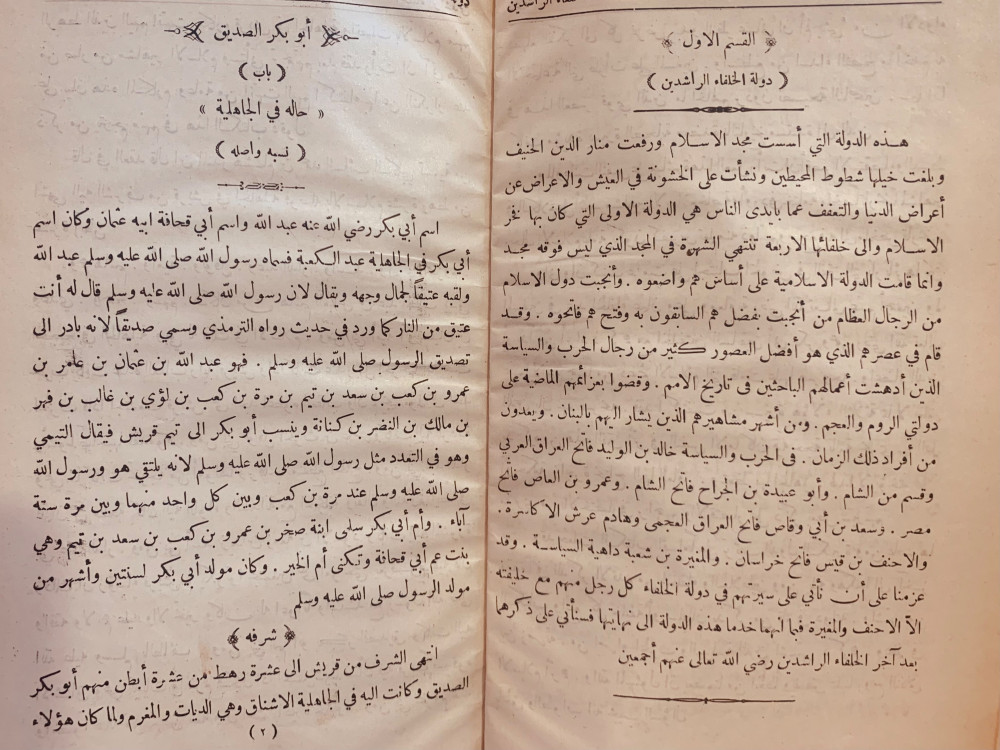 القسم الاول
( دولة الخلفاء الراشدين )
هـذه الدولة التي أسست مجد الاسـلام ورفعت منار الدين الحنيف
وبلغت خيلها شطوط المحيطين ونشأت على الخشونة في العيش والاعراض عن
أعراض الدنيا والتعفف عما بايدى الناس هي الدولة الاولى التي كان بها فخر
الاسـلام والى خلفائها الاربعة تنتهي الشهرة في المجد الذي ليس فوقه مجـد
وانما قامت الدولة الاسلامية على أساس هم واضعوه . وأنجبت دول الاسلام
من الرجال العظام من أنجبت بفضل هم السابقون به وفتح هم فاتحوه . وقـد
قام في عصرهم الذي هو أفضل العصور كثير من رجال الحرب والسياسة
الذين أدهشت أعمالهم الباحثين فى تاريخ الامم . وقضوا بعزائمهم الماضية على
دولتي الروم والعجم . ومن أشهر مشاهيرهم الذين يشار اليهم بالبنان . ويعدون
من أفراد ذلك الزمان . فى الحرب والسياسة خالد بن الوليد فاتح العراق العربي
وقسم من الشام . وأبو عبيدة بن الجراح فاتح الشام . وعمرو بن العاص فاتح
مصر . وسعد بن أبي وقاص فاتح العراق العجمى وهادم عرش الاكاسرة .
والاحنف بن قيس فاتح خراسان . والمغيرة بن شعبة داهية السياسـة . وقد
عزمنا على أن نأتي على سيرتهم في دولة الخلفاء كل رجل منهم مع خليفته
الاّ الاحنف والمغيرة فبما انهما خدما هذه الدولة الى نهايتها فسنأتي على ذكرهما
بعد آخر الخلفاء الراشدين رضي الله تعالى عنهم أجمعين
أبو بكر الصديق
( باب )
« حاله في الجاهلية »
( نسبه واصله )
اسم أبي بكر رضي الله عنه عبد الله واسم أبي قحافة ابيه عثمان وكان اسم
أبي بكر في الجاهلية عبد الكعبة فسماه رسول الله صلى الله عليه وسلم عبد الله
ولقبه عتيقاً لجمال وجهه ويقال لان رسول الله صلى الله عليه وسلم قال له أنت
عتيق من النار كما ورد في حديث رواه الترمذي وسمي صديقاً لانه بادر الى
تصديق الرسول صلى الله عليه وسلم . فهو عبد الله بن عثمان بن عامر بن
عمرو بن كعب بن سعد بن تيم بن مرة بن كعب بن لؤي بن غالب بن فهر
بن مالك بن النضر بن كنانة وينسب أبو بكر الى تيم قريش فيقال التيمي
وهو في التعدد مثل رسول الله صلى الله عليه وسلم لانه يلتقي هو ورسول الله
صلى الله عليه وسلم عند مرة بن كعب وبين كل واحد منهما وبين مرة ستة
آباء . وأم أبي بكر سلمى ابنة صخر بن عمرو بن كعب بن سعد بن تيم وهي
بنت عم أبي قحافة وتكنى أم الخير . وكان مولد أبي بكر لسنتين وأشهر من
مولد الرسول صلى الله عليه وسلم
﴿ شرفه ﴾
انتهى الشرف من قريش الى عشرة رهط من عشرة أبطن منهم أبو بكر
الصديق وكانت اليه في الجاهلية الاشناق وهي الديات والمغرم ولما كان هؤلاء
( ٢ )